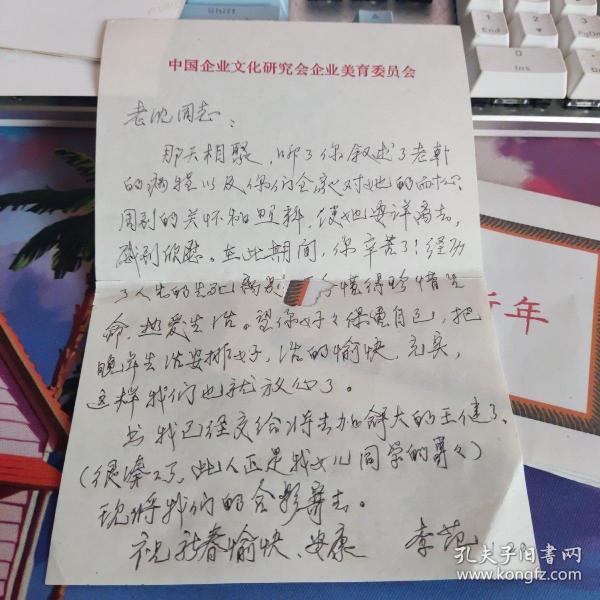 中国企业文化研究会企业美育委员会
老沈同志：
那天相聚，听了你叙述了老韩
的病程以及你们全家对她的耐心、
周到的关怀和照料，使她安详离去，
感到欣慰。在此期间，你辛苦了！经历
了人生的生死离别 懂得珍惜生
命，热爱生活。望你好好保重自己，把
晚年生活安排好，活的愉快、充实，
这样我们也就放心了。
书我已经交给将去加拿大的王健了。
（很凑巧，此人正是我女儿同学的哥哥）
现将我们的合影寄去。
祝新春愉快、安康 李范
年
End
PgDn
0
Ins
Shift
孔夫子旧书网
www.kongfz.com